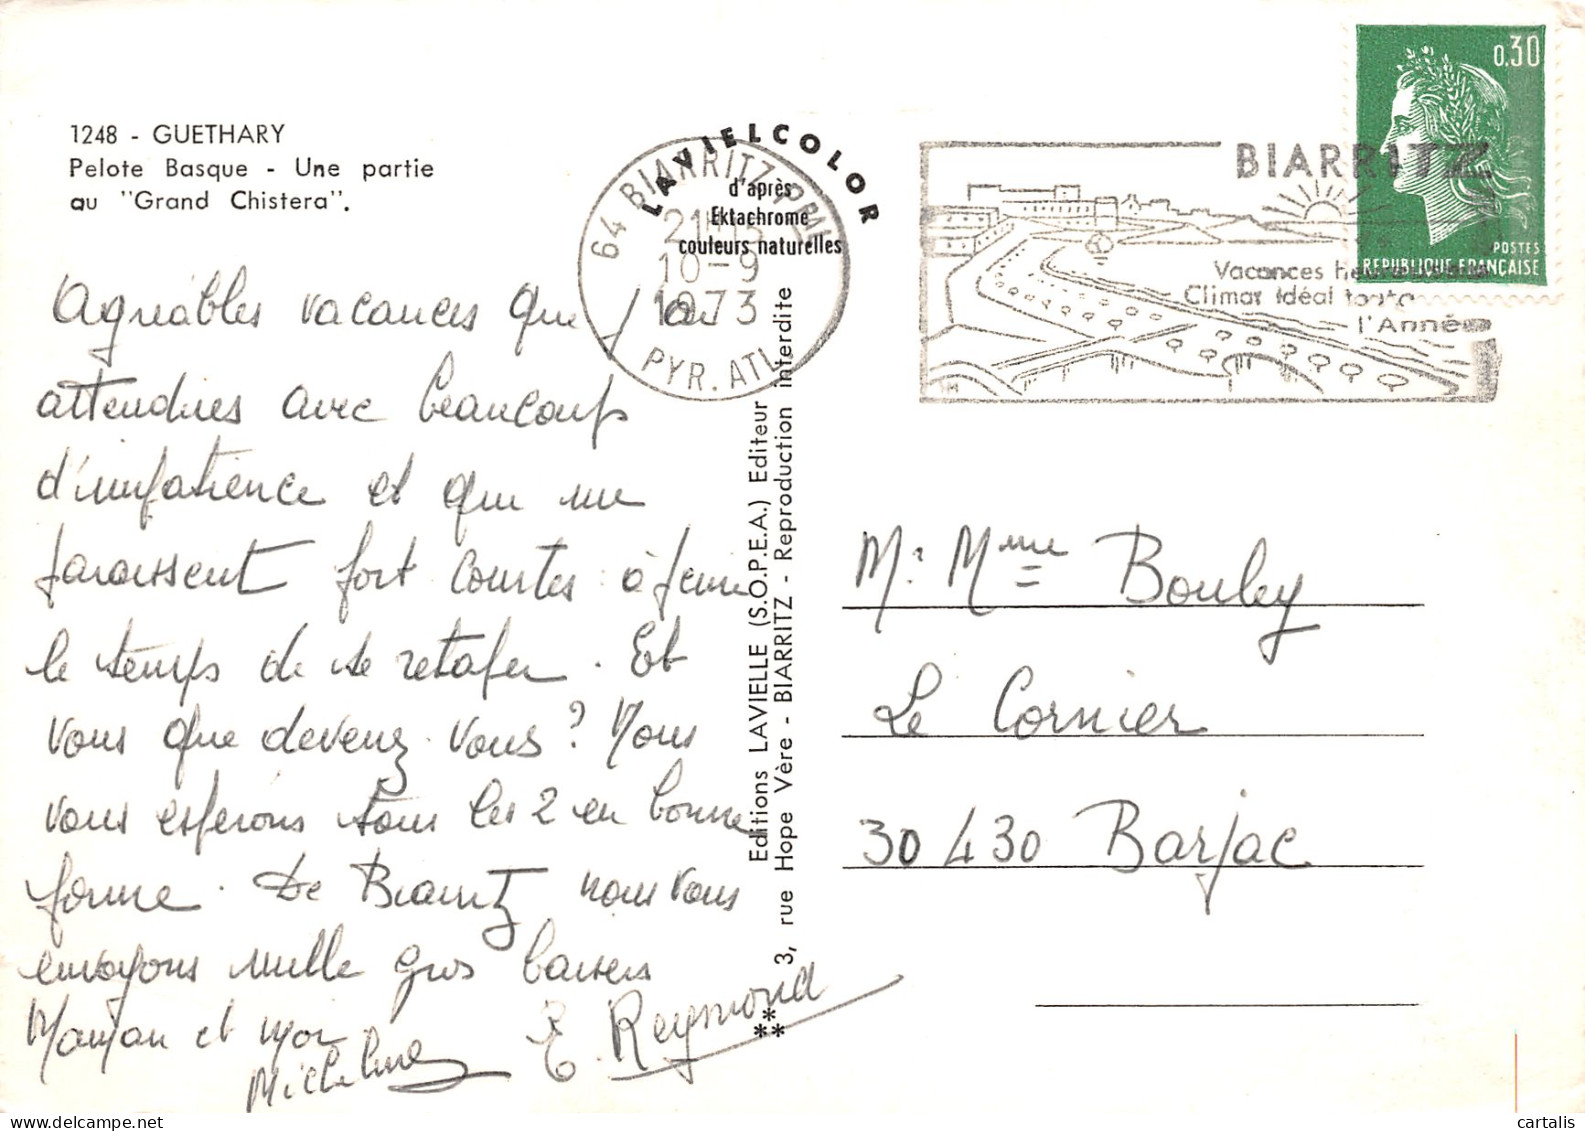 1248 - GUETHARY
Pelote Basque - Une partie
au "Grand Chistera".
LAVIELCOLOR
d'après
Ektachrome
couleurs naturelles
64 BIARRITZ PPAL
21H15
10-9
1973
PYR. ATL.
BIARRITZ
Vacances heureuses
Climat Idéal toute
l'Année
0,30
POSTES
REPUBLIQUE FRANÇAISE
Agréables vacances que j'ai
attendues avec beaucoup
d'impatience et qui me
paraissent fort courtes : à peine
le temps de se retaper. Et
vous que devenez-vous ? Nous
vous espérons tous les 2 en bonne
forme. De Biarritz nous vous
envoyons mille gros baisers
Maman et moi
Micheline E. Reymond
Editions LAVIELLE (S.O.P.E.A.) Editeur
3, rue Hope Vère - BIARRITZ - Reproduction interdite
***
Mr Mme Bouley
Le Cornier
30430 Barjac
cartalis